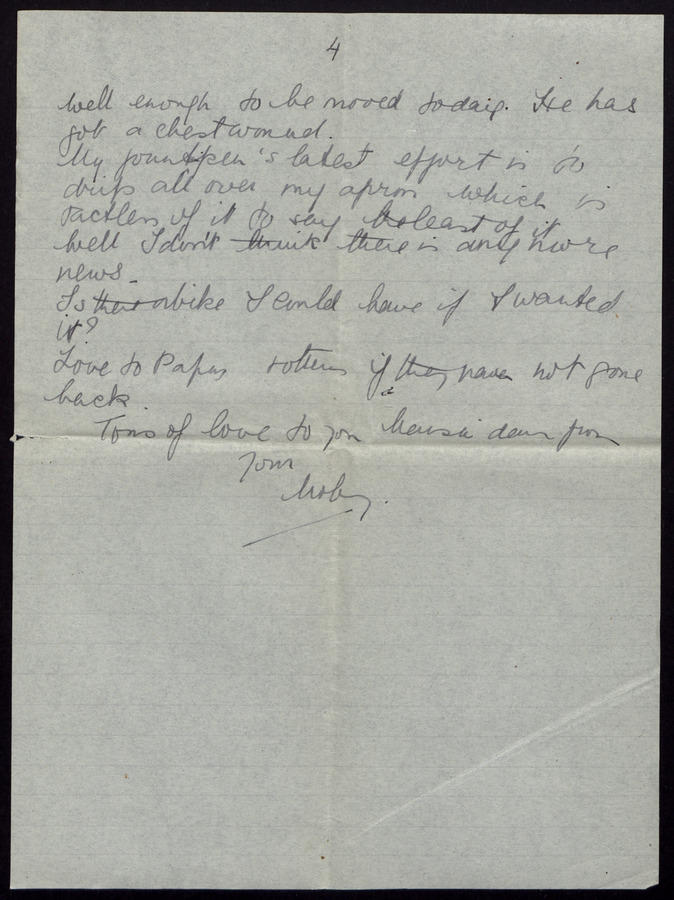 4
well enough to be moved today. He has
got a chest wound.
My fountpen's latest effort is to
drip all over my apron which is
tactless of it to say the least of it
Well I don't think there is any more
news.
Is there a bike I could have if I wanted
it?
Love to Papa & others if they have not gone
back
Tons of love to you dear from
Your